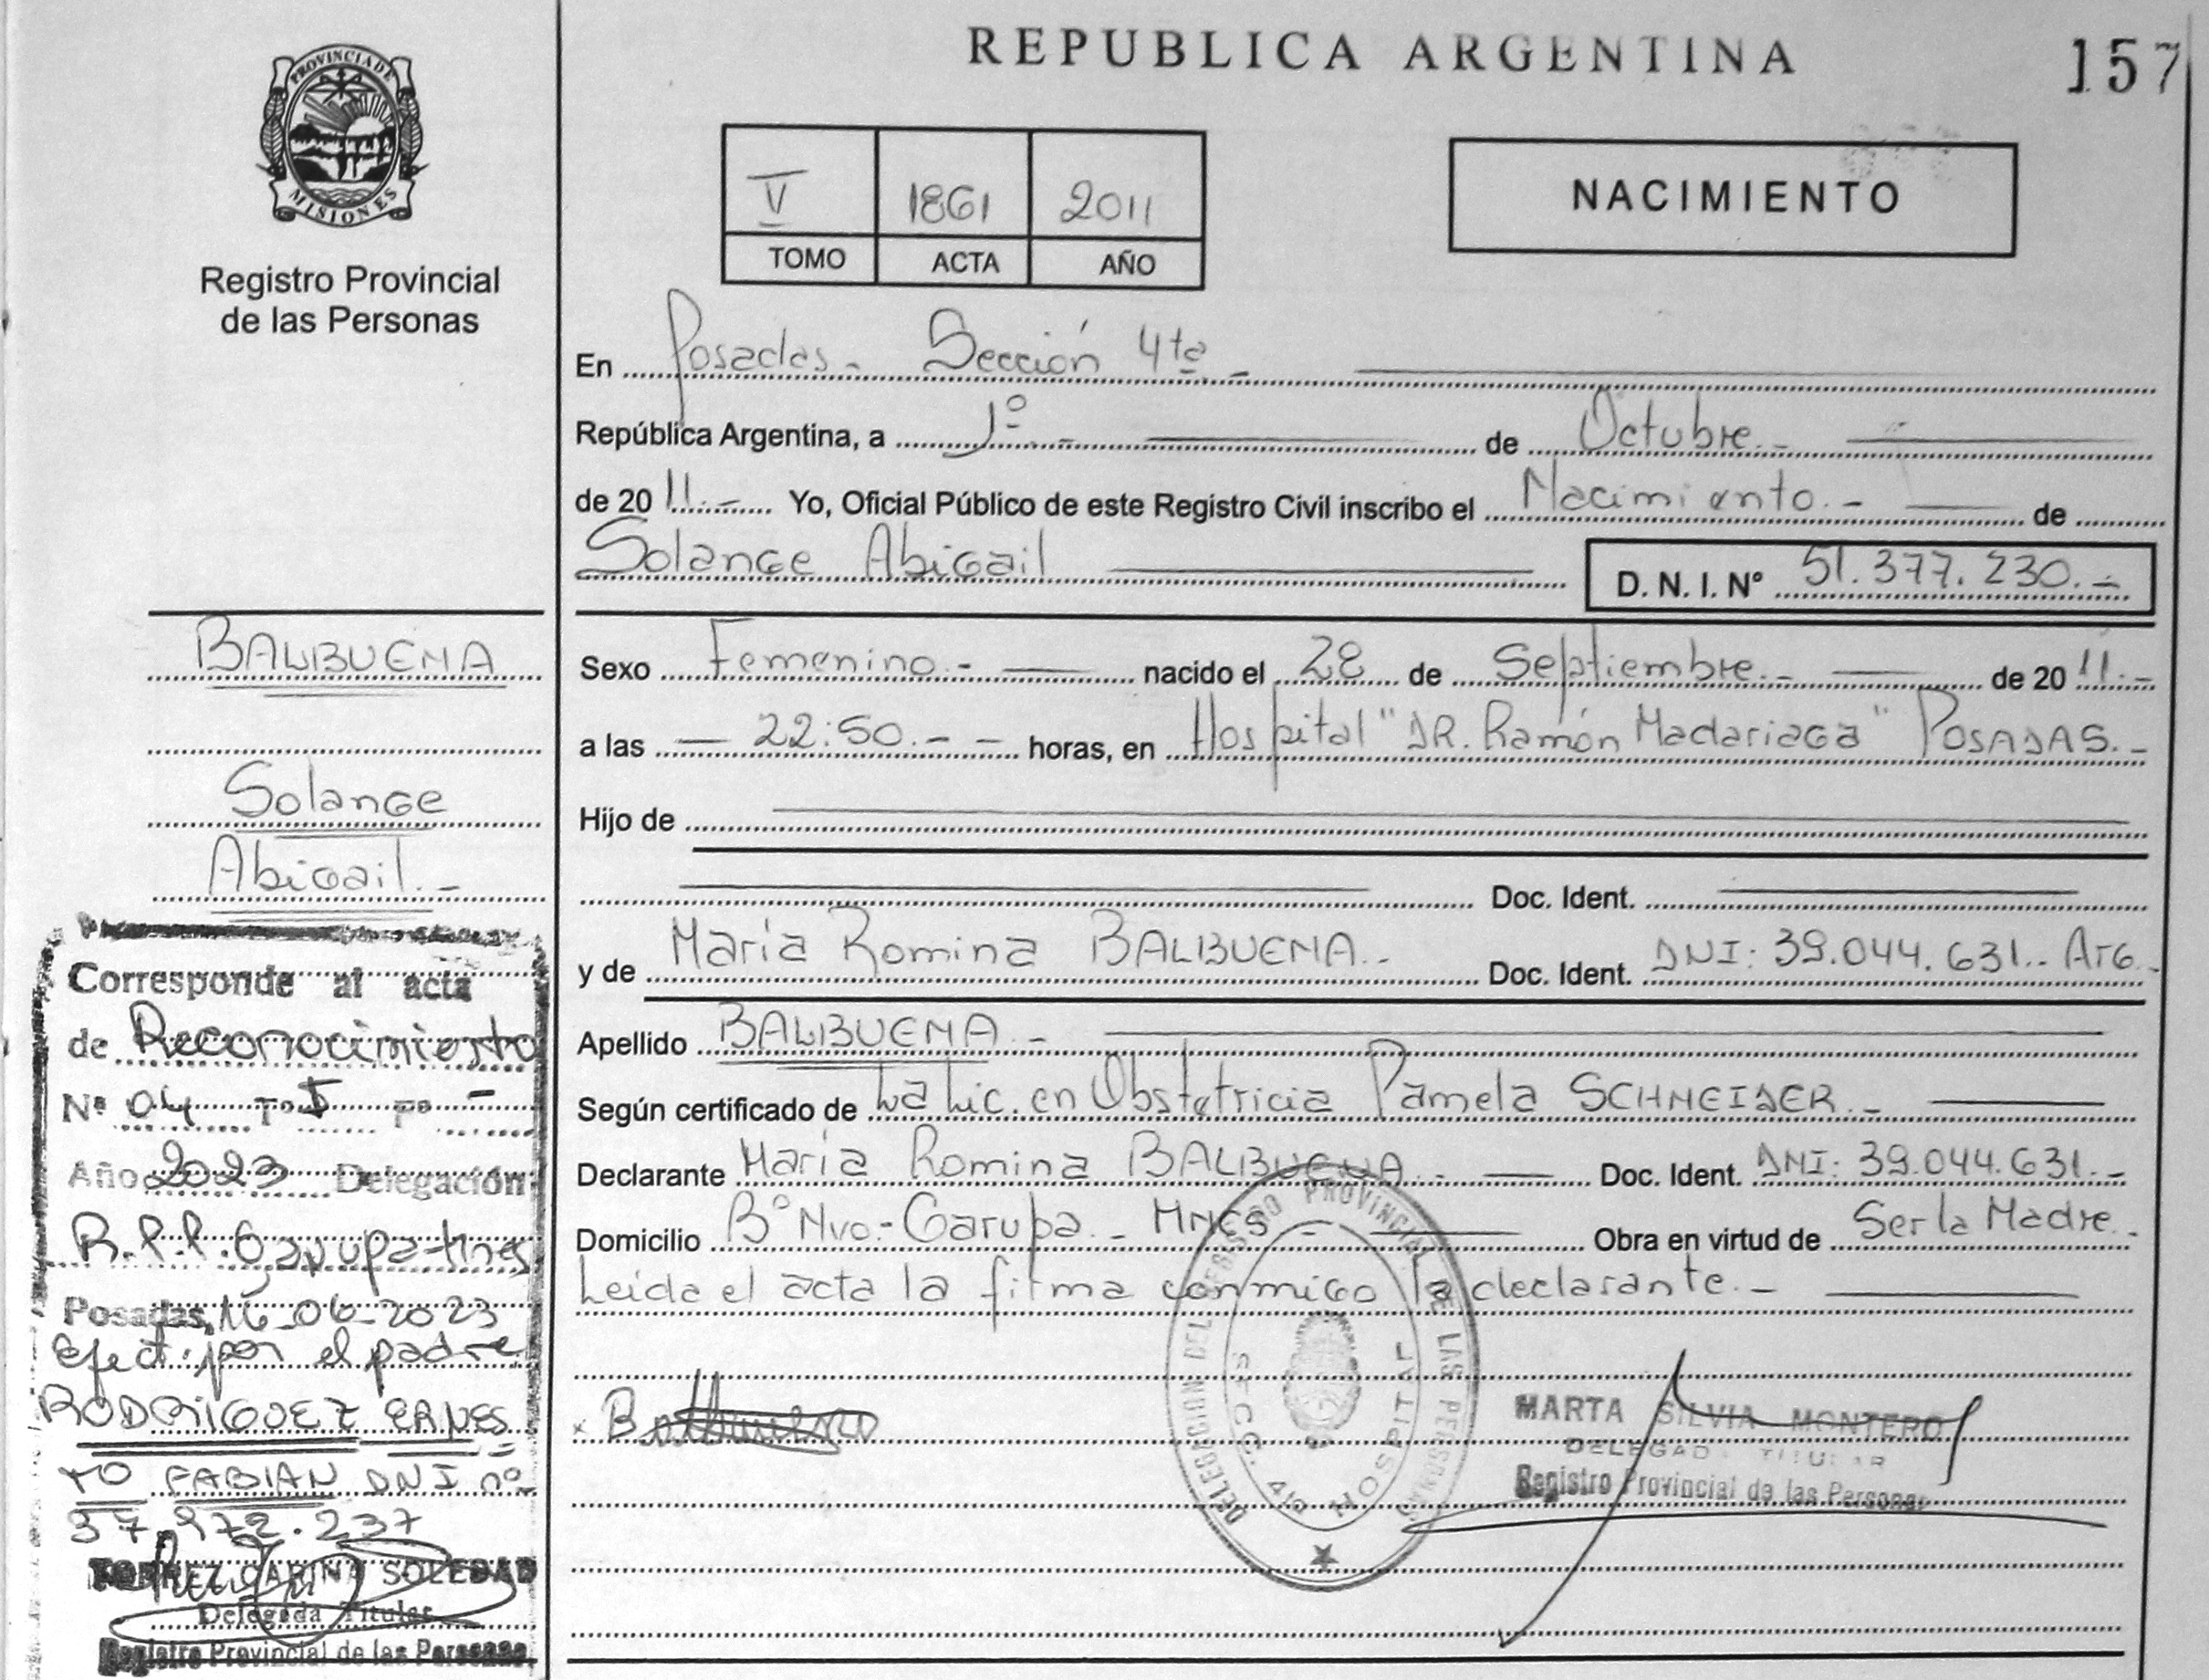 REPUBLICA ARGENTINA
157
PROVINCIA DE
MISIONES
Registro Provincial
de las Personas
V 1861 2011
TOMO ACTA AÑO
NACIMIENTO
En Posadas - Sección 4ta -
República Argentina, a 1º - de Octubre. -
de 20 11. - Yo, Oficial Público de este Registro Civil inscribo el Nacimiento. - de
Solange Abigail
D. N. I. Nº 51.377.230. -
BALBUENA
Solange
Abigail. -
Sexo Femenino. - nacido el 28 de Septiembre. - de 20 11. -
a las - 22:50. - - horas, en Hospital "DR. Ramón Madariaga" POSADAS. -
Hijo de
Doc. Ident.
y de María Romina BALBUENA. - Doc. Ident. DNI: 39.044.631.. Arg.
Apellido BALBUENA. -
Según certificado de La Lic. en Obstetricia Pamela SCHNEIDER. -
Declarante María Romina BALBUENA. - Doc. Ident. DNI: 39.044.631. -
Domicilio Bº Nvo. - Garupa - MNES - Obra en virtud de Ser la Madre. -
Leída el acta la firma conmigo la declarante. -
DELEGACION DEL REGISTRO PROVINCIAL DE LAS PERSONAS
SECC. 4ta HOSPITAL
MARTA SILVIA MONTERO
DELEGADA TITULAR
Registro Provincial de las Personas
Corresponde al acta
de Reconocimiento
Nº 04 Tº I Fº -
Año 2023 Delegación
R.P.P. Garupa-Mnes
Posadas, 16-06-2023
Efect. por el padre
RODRIGUEZ ERNES
TO FABIAN DNI nº
37.972.237
CARINA SOLEDAD
Delegada Titular
Registro Provincial de las Personas